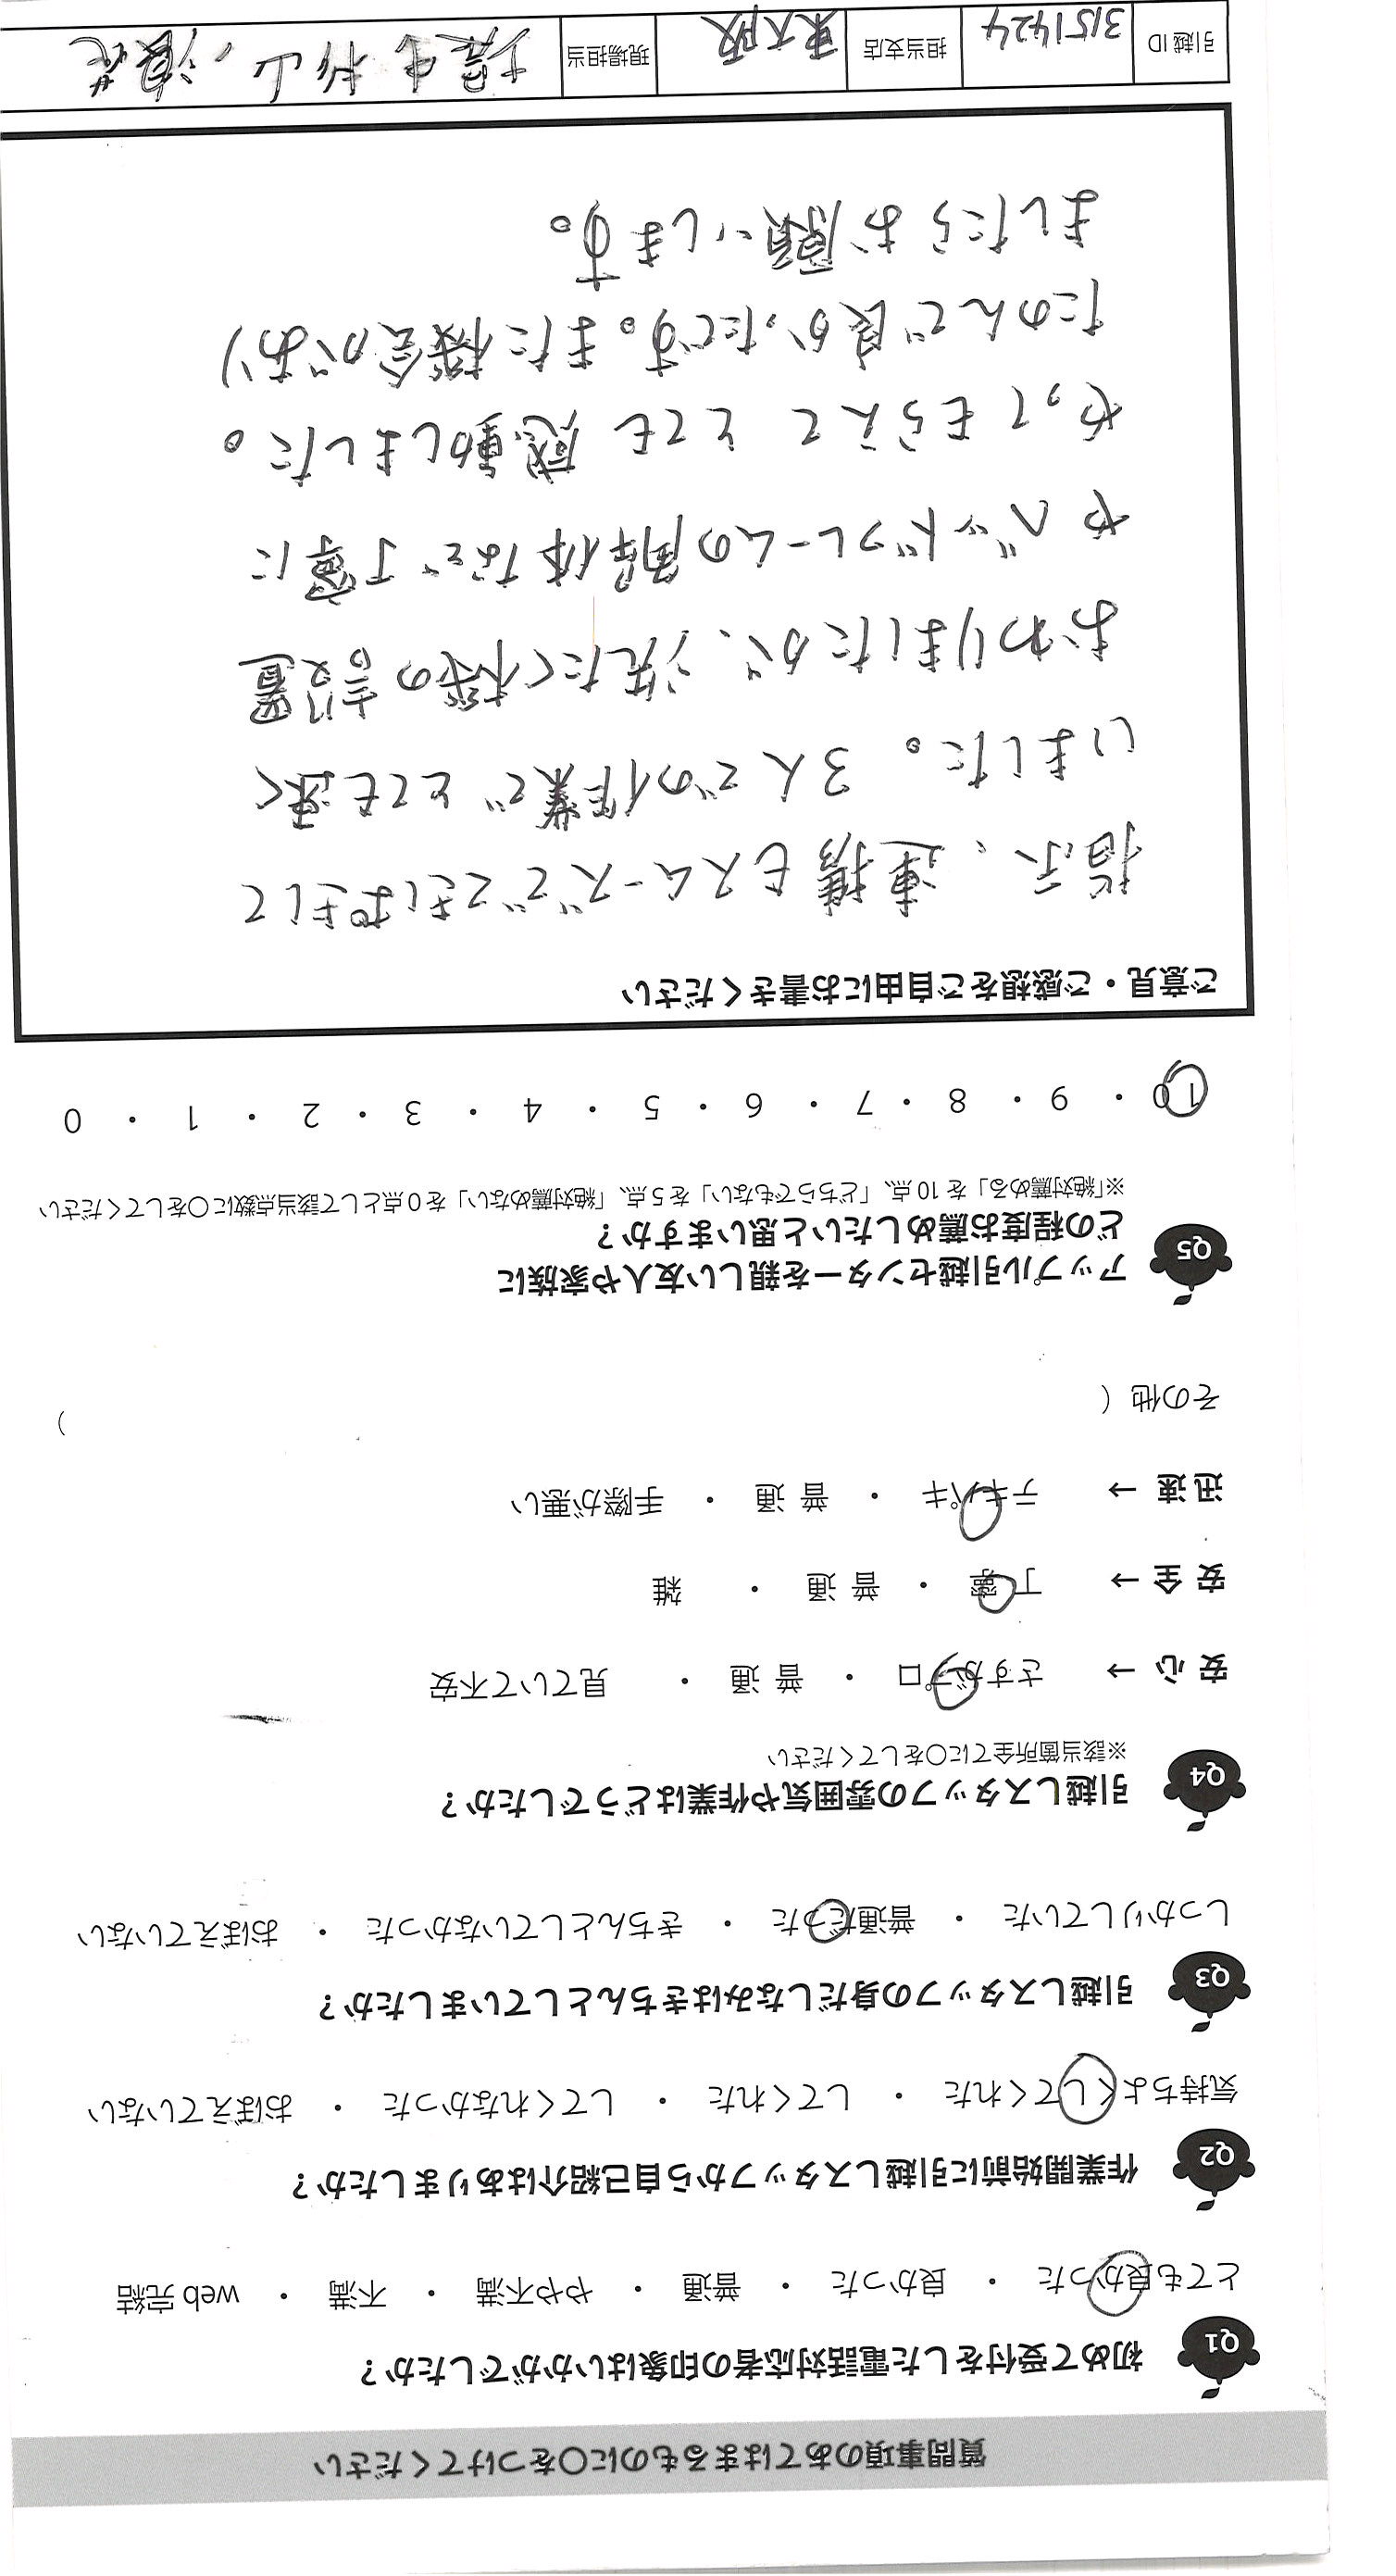 質問事項のあてはまるものに〇をつけてください
Q1 初めて受付をした電話対応者の印象はいかがでしたか？
とても良かった ・ 良かった ・ 普通 ・ やや不満 ・ 不満 ・ web完結
Q2 作業開始前に引越しスタッフから自己紹介はありましたか？
気持ちよくしてくれた ・ してくれた ・ してくれなかった ・ おぼえていない
Q3 引越しスタッフの身だしなみはきちんとしていましたか？
しっかりしていた ・ 普通だった ・ きちんとしていなかった ・ おぼえていない
Q4 引越しスタッフの雰囲気や作業はどうでしたか？
※該当箇所全てに〇をしてください
安心 → さすがプロ ・ 普通 ・ 見ていて不安
安全 → 丁寧 ・ 普通 ・ 雑
迅速 → テキパキ ・ 普通 ・ 手際が悪い
その他（ ）
Q5 アップル引越センターを親しい友人や家族に
どの程度お薦めしたいと思いますか？
※「絶対薦める」を10点、「どちらでもない」を5点、「絶対薦めない」を0点として該当点数に〇をしてください
10 ・ 9 ・ 8 ・ 7 ・ 6 ・ 5 ・ 4 ・ 3 ・ 2 ・ 1 ・ 0
ご意見・ご感想をご自由にお書きください
指示、連携もスムーズでてきぱきして
いました。3人での作業でとても速く
おわりましたが、洗たく機の設置
やベッドフレームの解体など丁寧に
やってもらえてとても感動しました。
たのんで良かったです。また機会があり
ましたらお願いします。
引越ID 3151424 担当支店 東大阪 現場担当 杉山